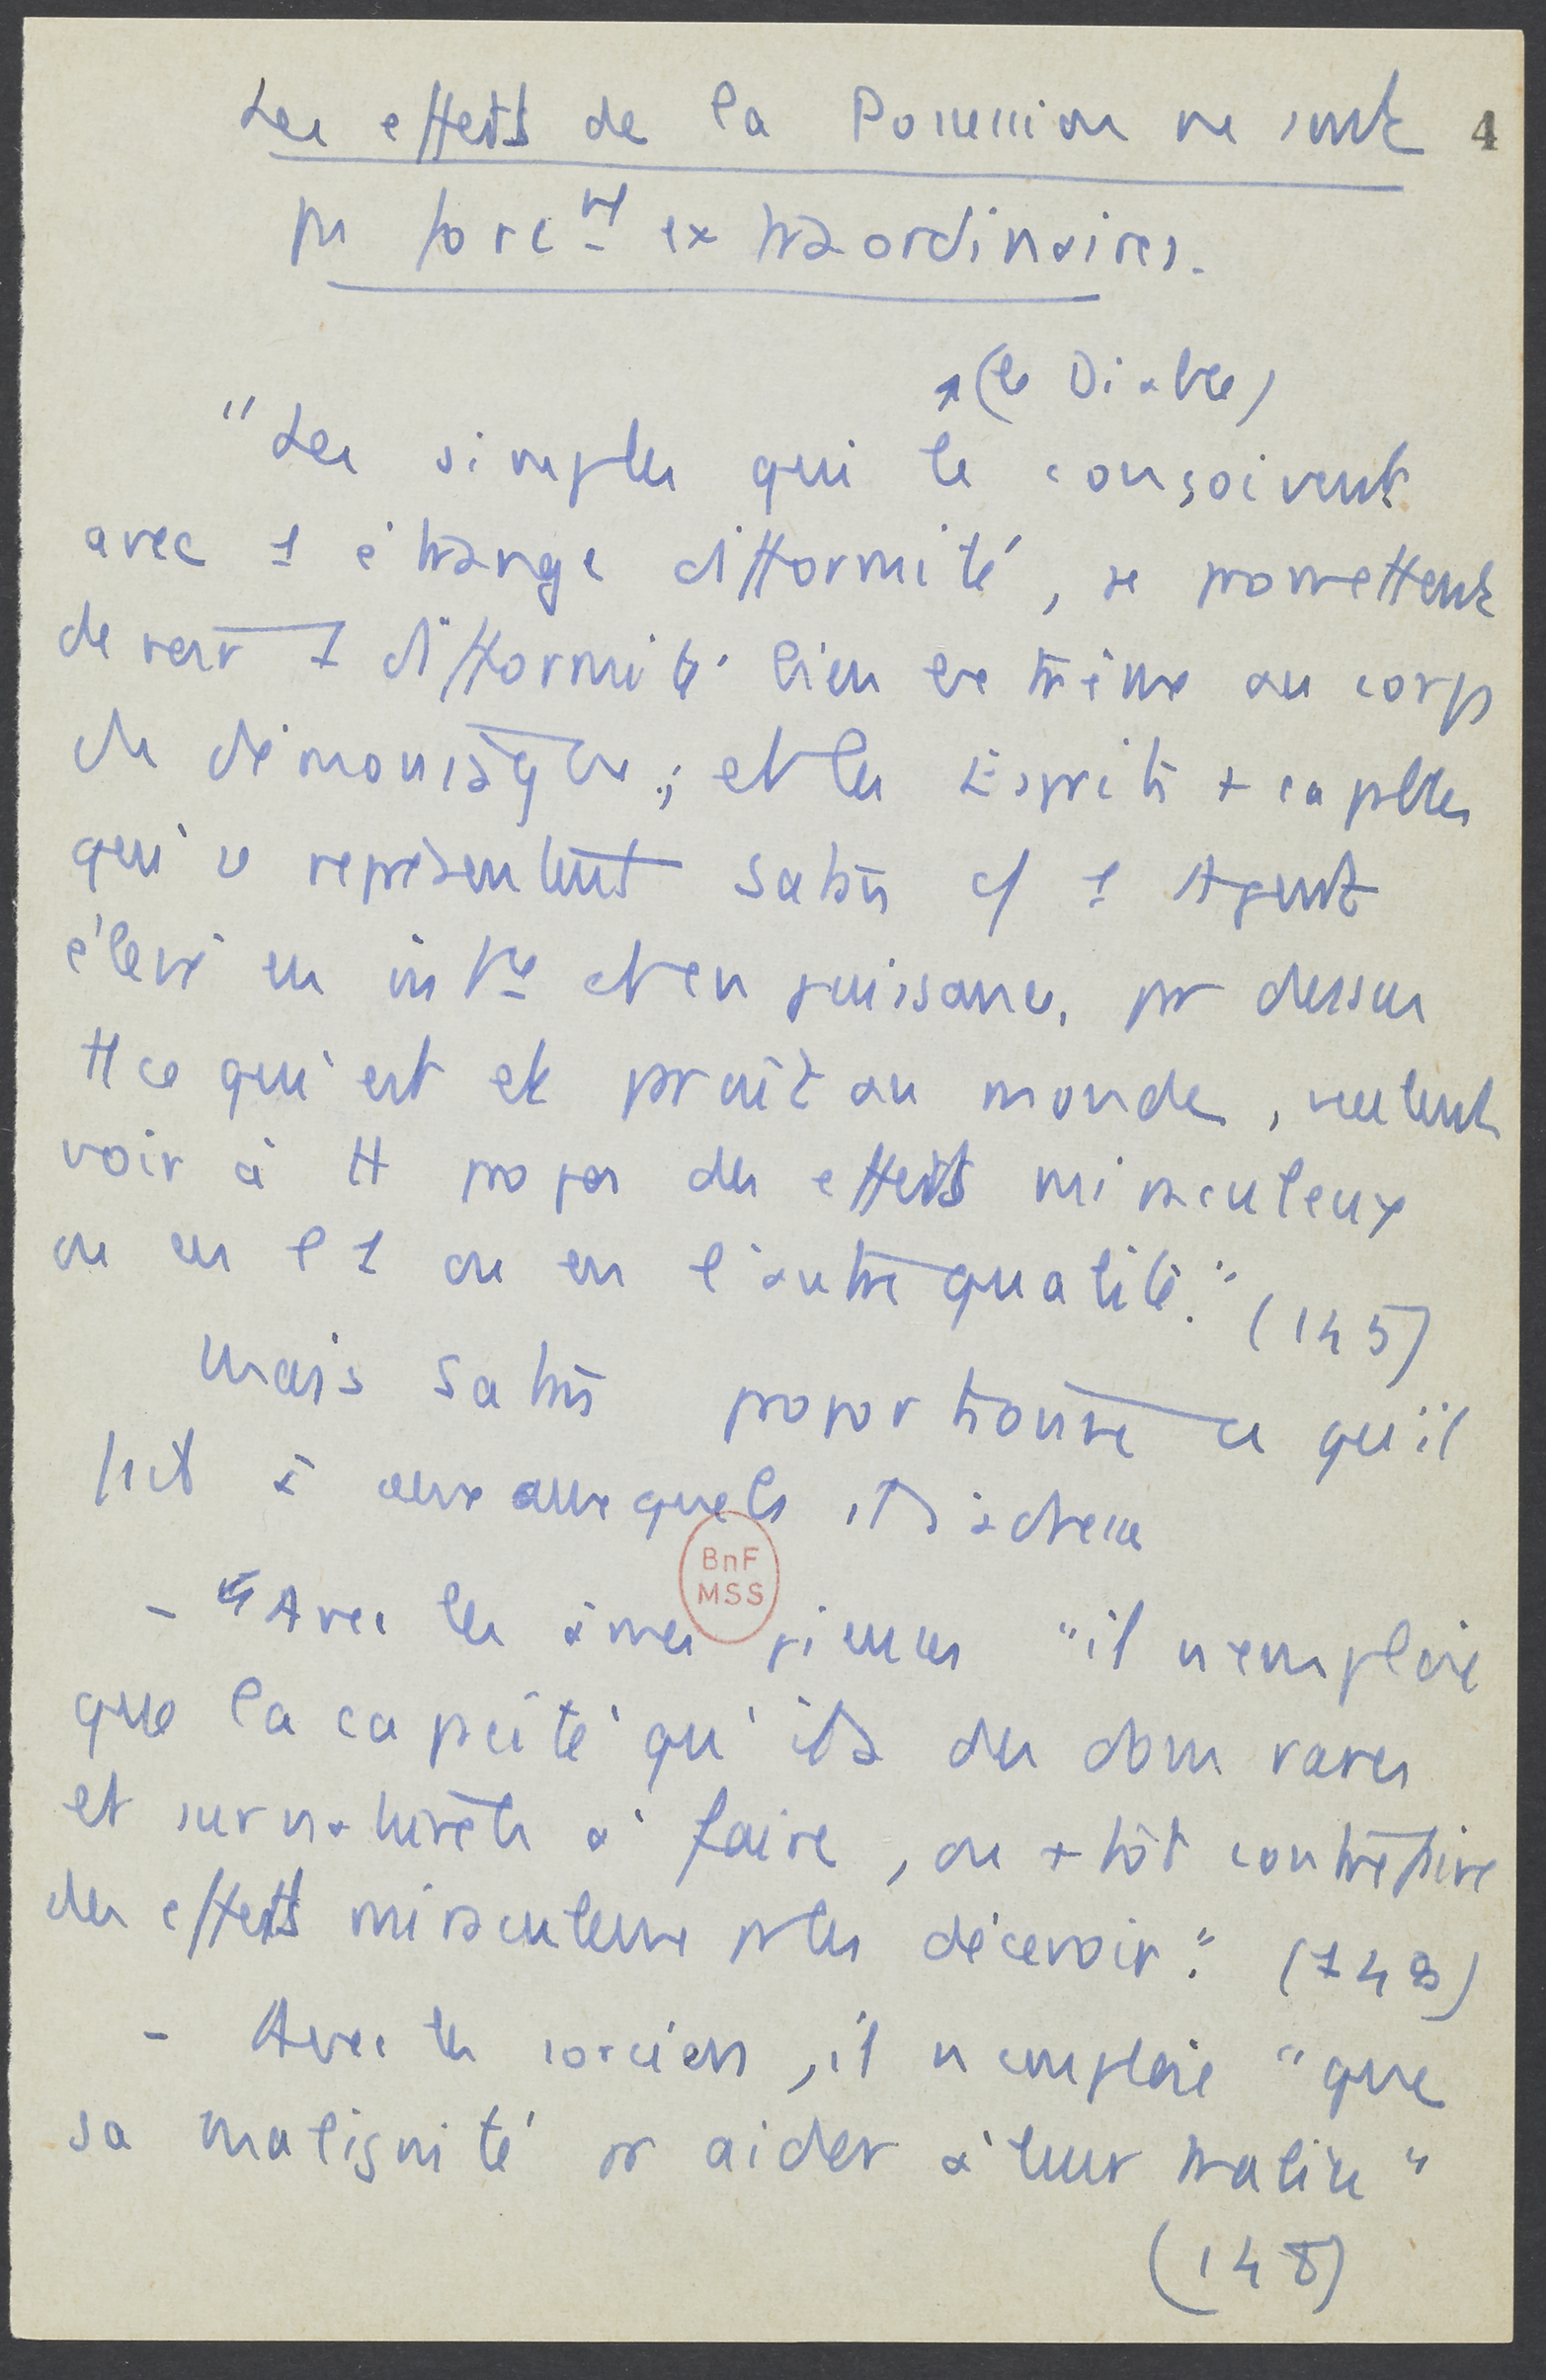 Les effets de la Possession ne sont
4
pas forc^nt extraordinaires.
(le Diable)
"Les simples qui le conçoivent
avec 1 étrange difformité, se promettent
de voir 1 difformité bien extrême au corps
du démoniaque; et les Esprits + capables
qui se représentent Satan c/ 1 Agent
élevé en intce et en puissance, pr dessus
tt ce qui est et paraît au monde, veulent
voir à tt propos des effets miraculeux
ou en l'1 ou en l'autre qualité." (145)
Mais Satan proportionne ce qu'il
fait à ceux auxquels il s'adresse
BnF
MSS
- Avec les âmes pieuses "il n'emploie
que la capacité qu'il a des dons rares
et surnaturels à faire, ou +tôt contrefaire
des effets miraculeux pr les décevoir." (148)
- Avec les sorciers, il n'emploie "que
sa malignité pr aider à leur malice"
(148)